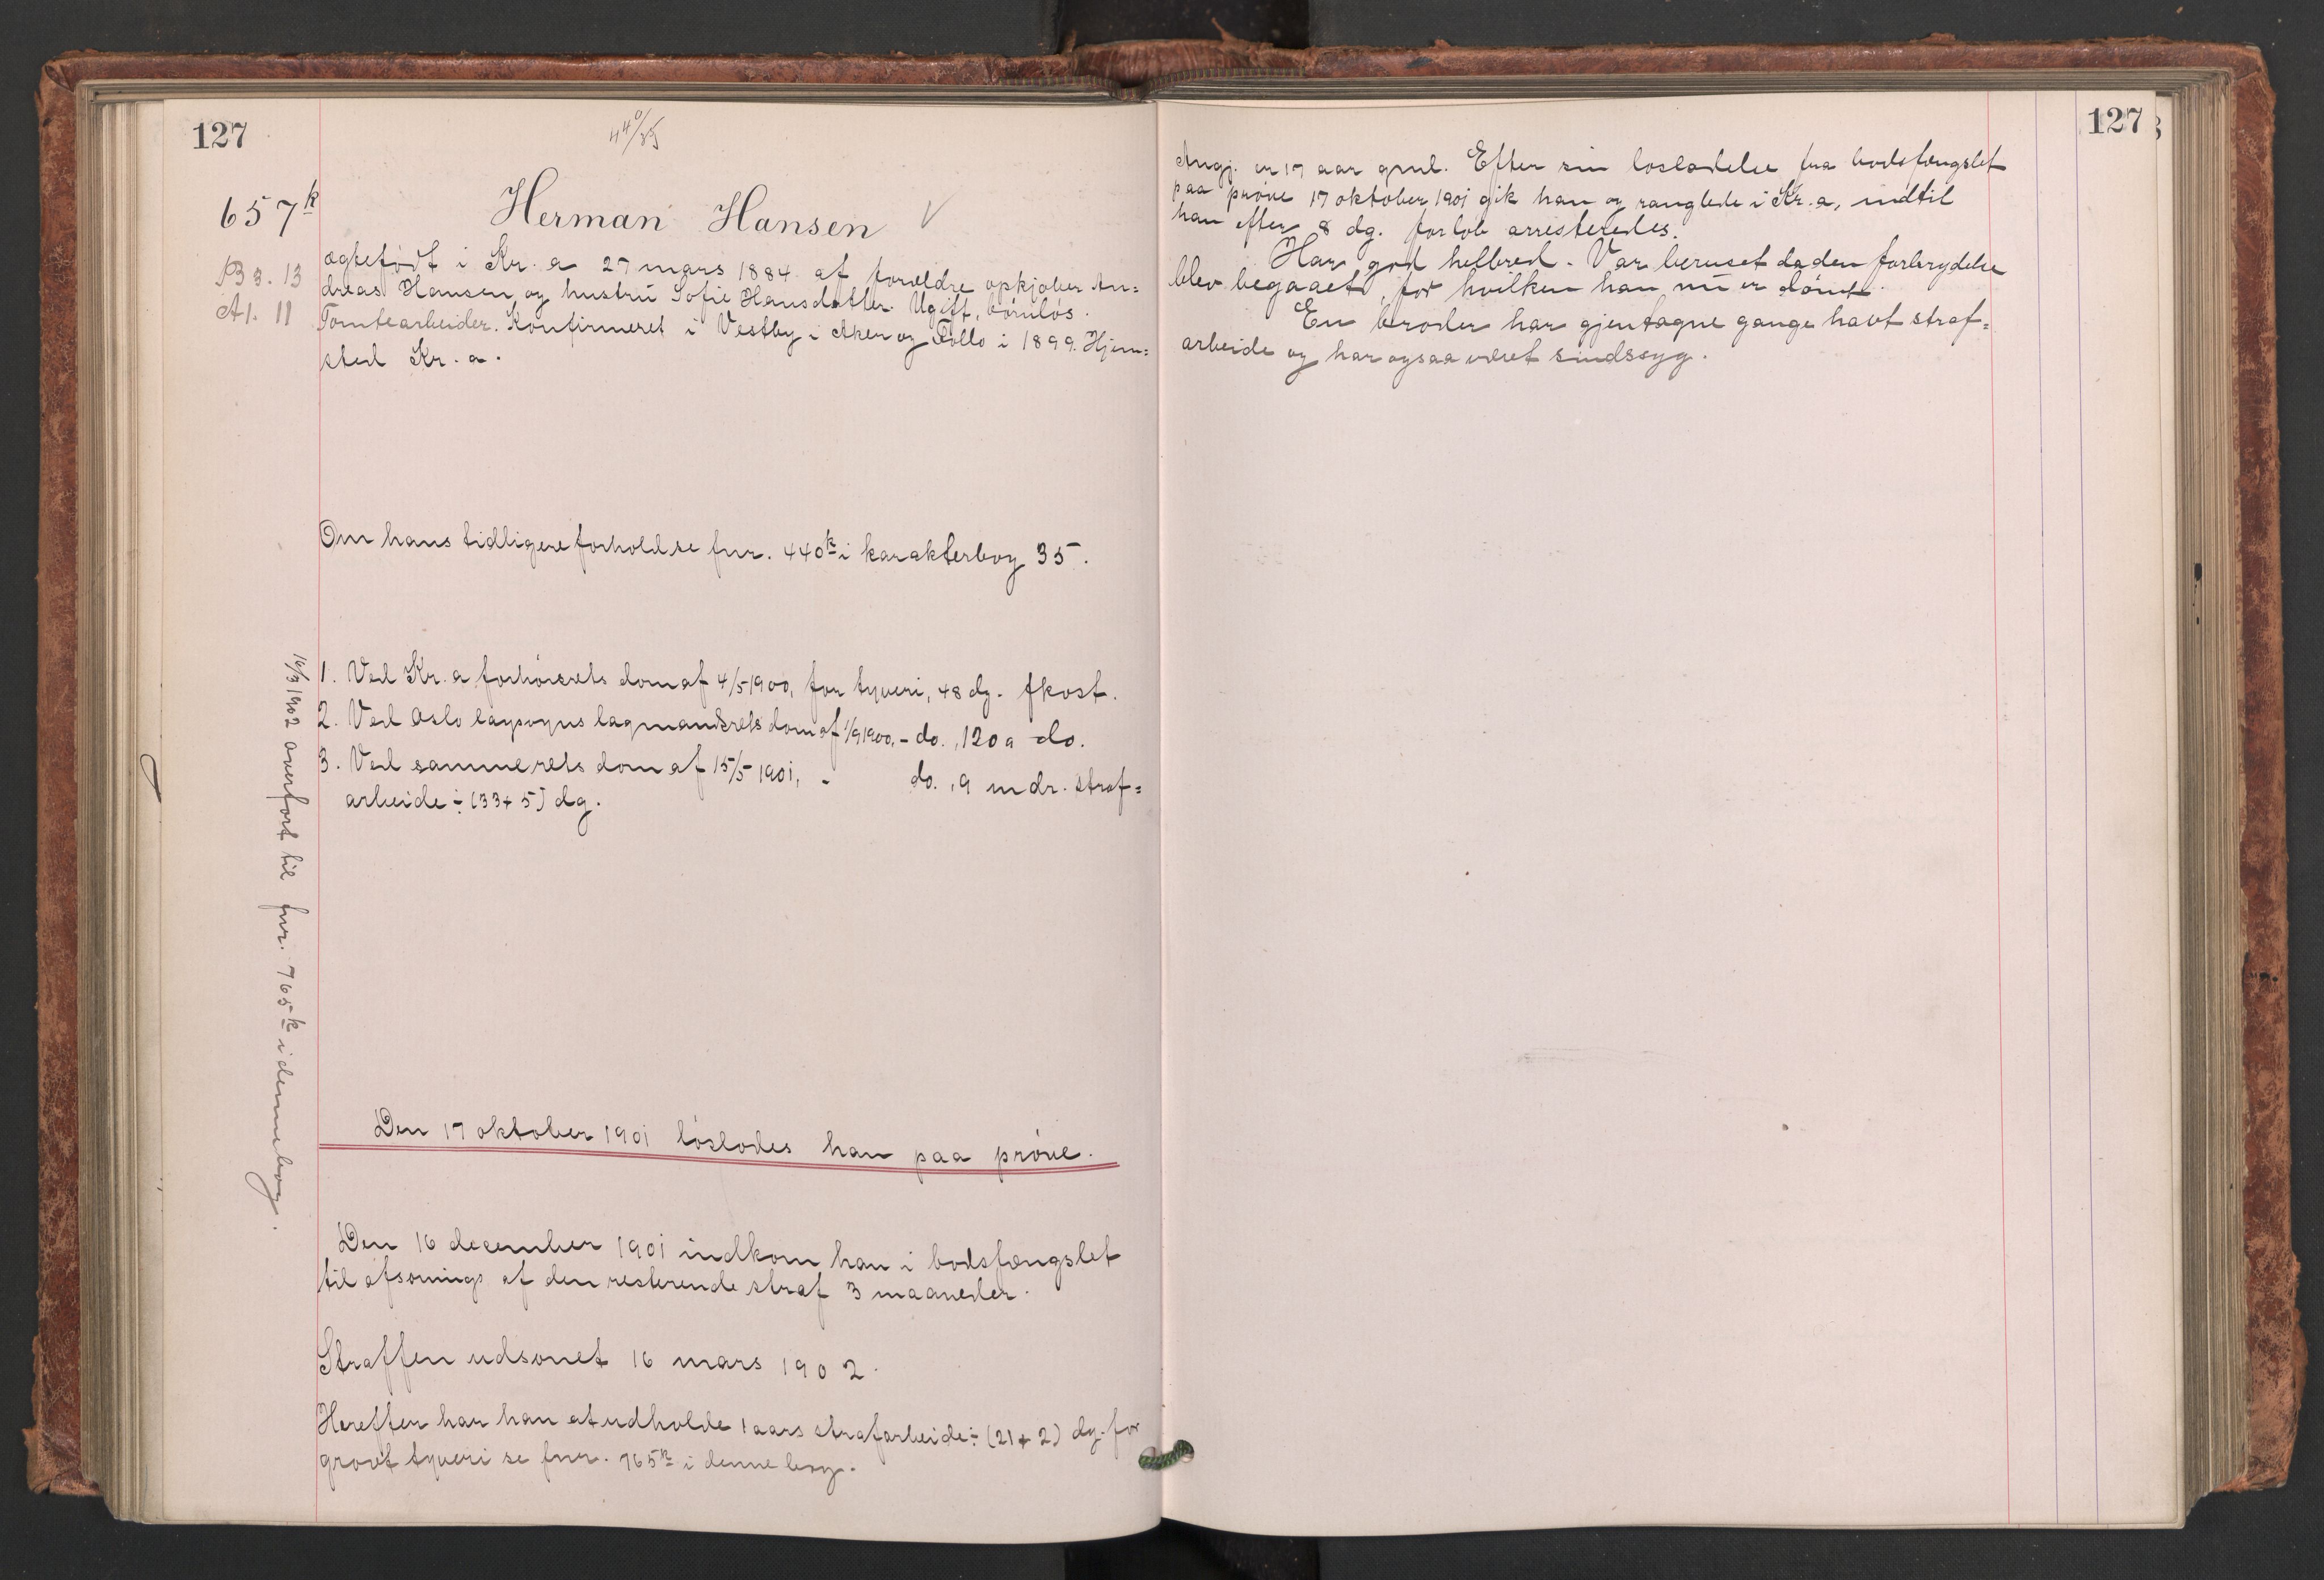 127
440/35
657k
Herman Hansen
B 3. 13
A 1. 11
ægtefødt i Kr.a 27 mars 1884 af forældre opkjøber An=
dreas Hansen og hustru Sofie Hansdatter. Ugift, börnlös.
Tomtearbeider. Konfirmeret i Vestby i Aker og Follo i 1899. Hjem=
sted Kr.a.
Om hans tidligere forhold se fnr. 440k i karakterbog 35.
1. Ved Kr.a forhörsrets dom af 4/5 1900, for tyveri, 48 dg. fkost.
2. Ved Oslo lagsogns lagmandsrets dom af 1/9 1900, - do., 120 a do.
3. Ved samme rets dom af 15/5 1901, - do., 9 mdr. straf=
arbeide ÷ (33+5) dg.
16/3 1902 overført til fnr. 765k i denne bog.
Den 17 oktober 1901 löslodes han paa pröve.
Den 16 december 1901 indkom han i bodsfængslet
til afsonings af den resterende straf 3 maaneder.
Straffen udsonet 16 mars 1902.
Herefter har han at udholde 1 aars strafarbeide ÷ (21+2) dg. for
grovt tyveri se fnr. 765k i denne bog.
127
Angj. er 17 aar gml. Efter sin losladelse fra bodsfængslet
paa pröve 17 oktober 1901 gik han og ranglede i Kr.a, indtil
han efter 8 dg. forlob arresteredes.
Har god helbred. Var beruset da den forbrydelse
blev begaaet, for hvilken han nu er dömt.
En broder har gjentagne gange havt straf=
arbeide og har ogsaa været sindssyg.